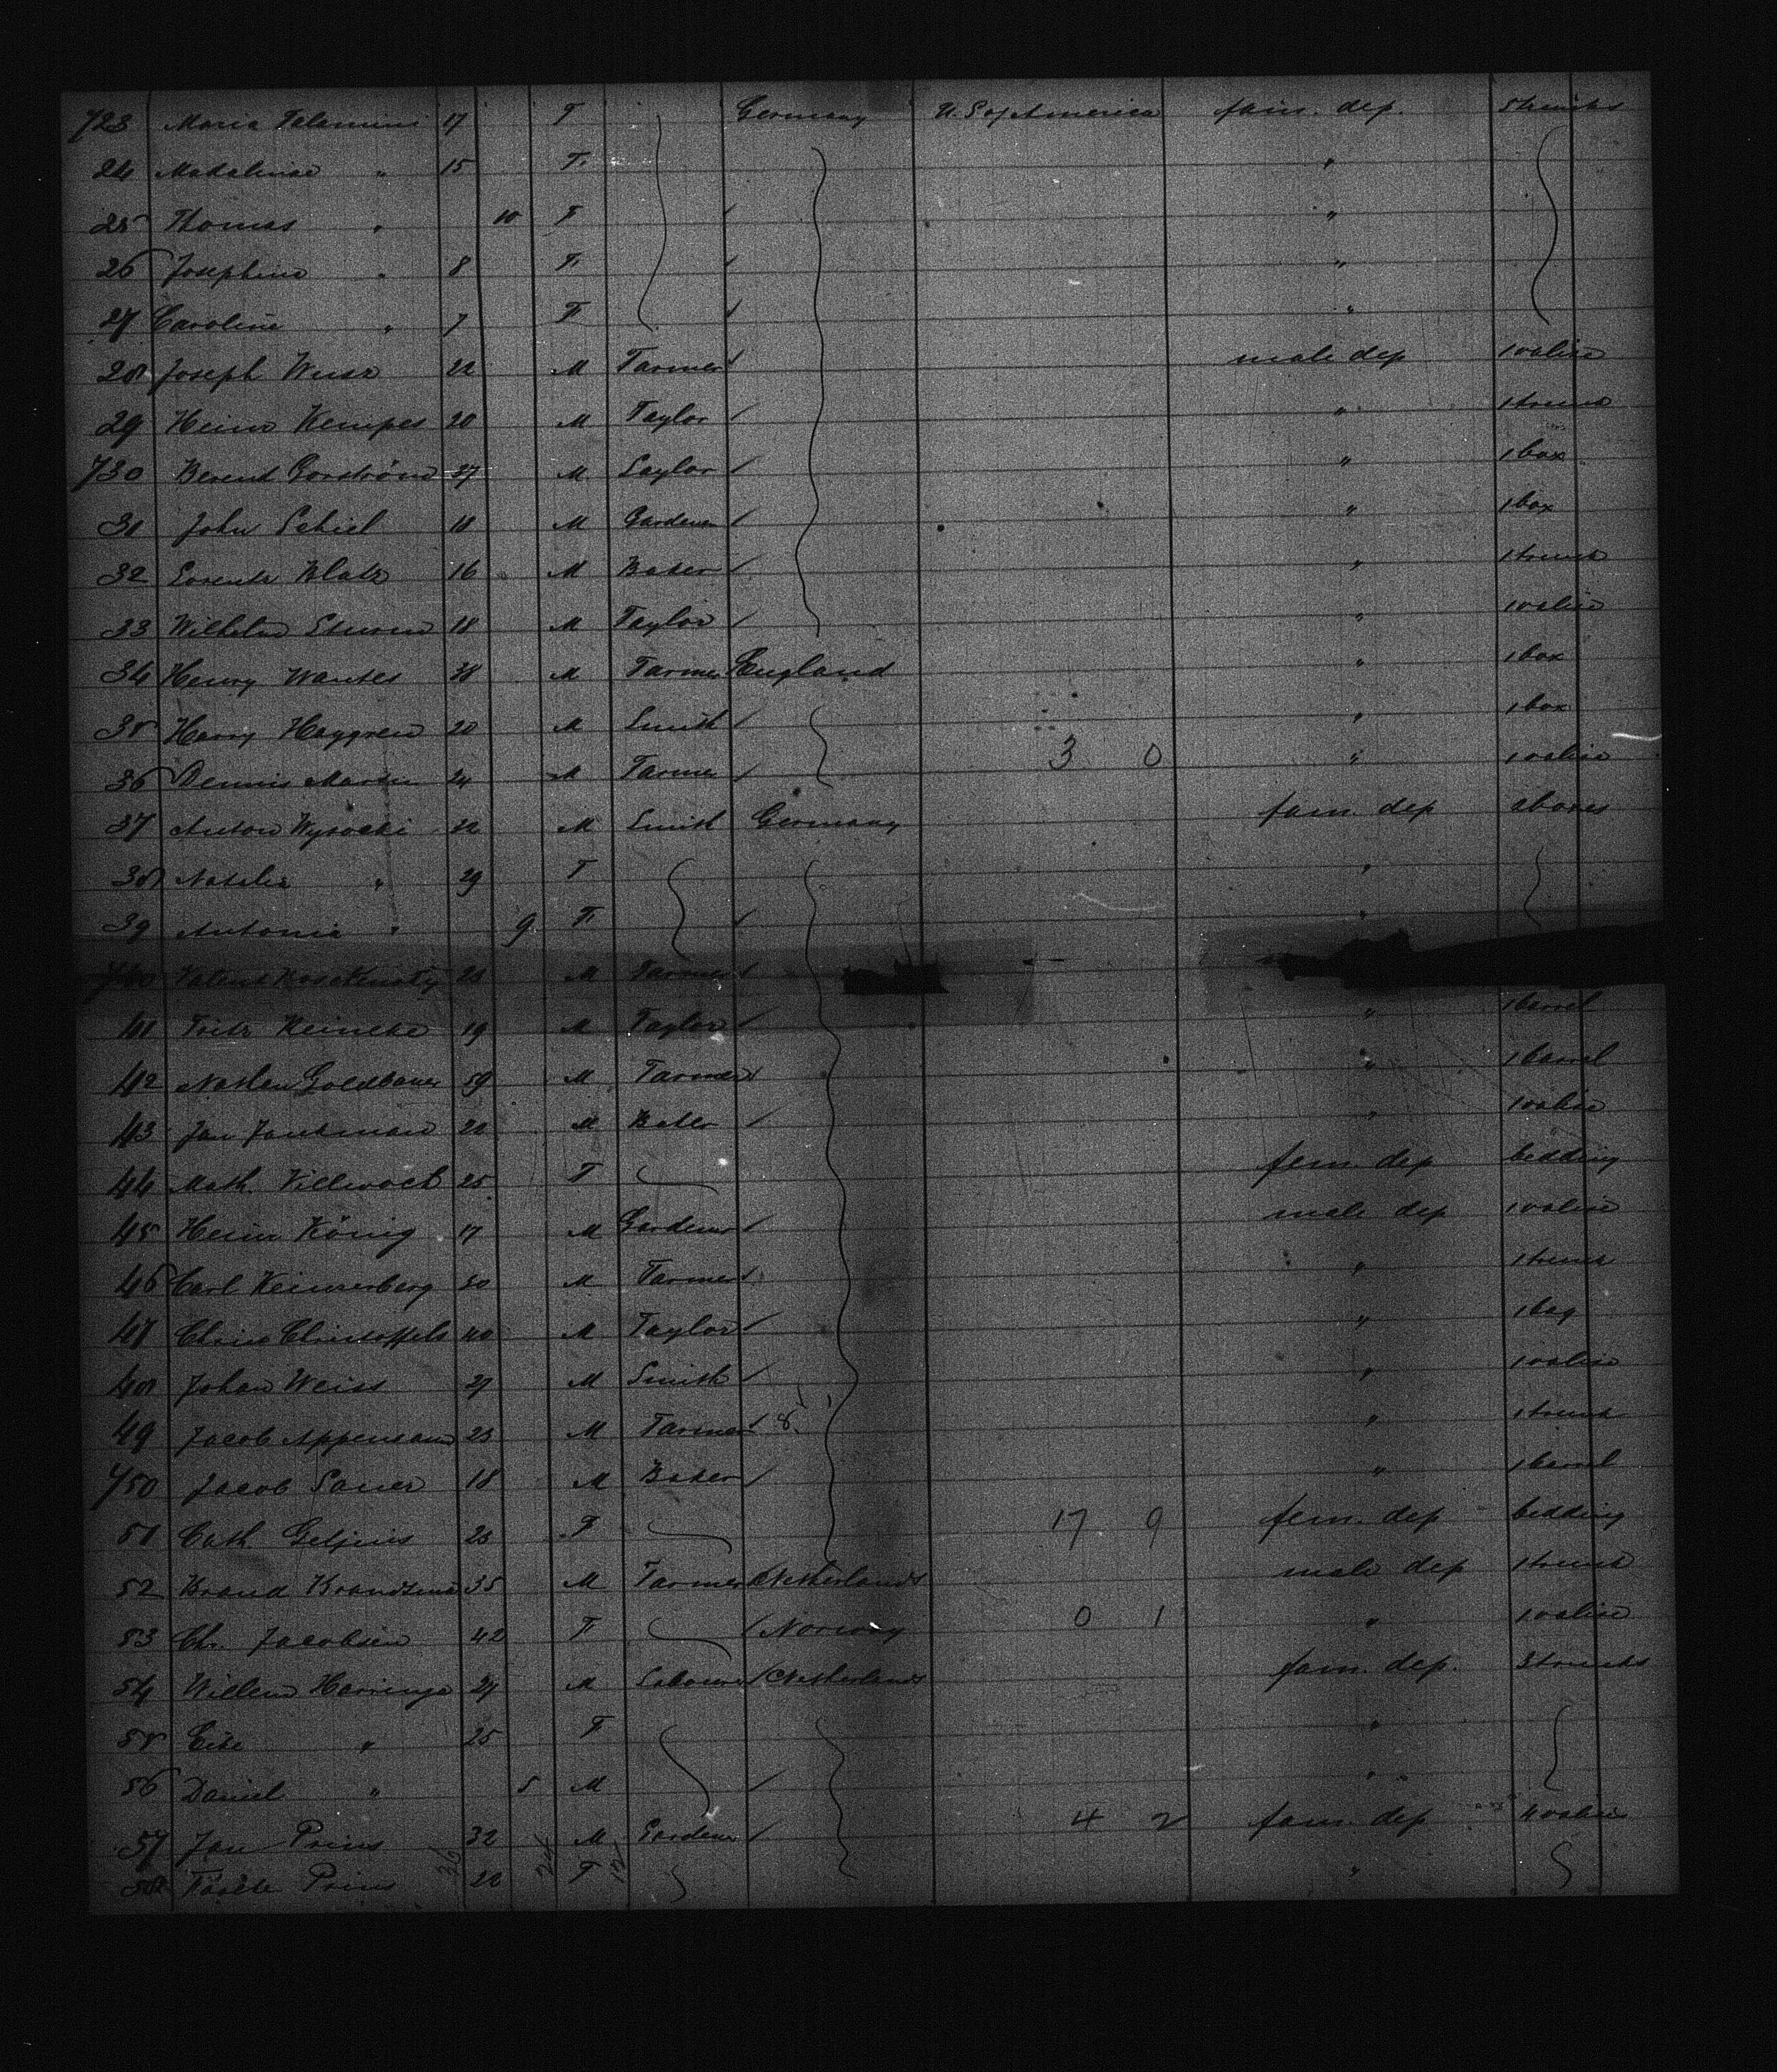 723 Maria Talamini 17 F Germany U. S. of America fam. dep. 5 trunks
24 Madalinae " 15 F "
25 Thomas " 10 F "
26 Josephine " 8 F "
27 Caroline " 7 F "
28 Joseph Weise 22 M Farmer male dep 1 valise
29 Heinr Kempes 20 M Taylor " 1 trunk
730 Berend 27 M Saylor " 1 box
31 John Schiel 18 M Gardener " 1 box
32 Lorentz Blatz 16 M Baker " 1 trunk
33 Wilhelm 18 M Taylor " 1 valise
34 Henry Wantes 38 M Farmer England " 1 box
35 Harry Haggren 20 M Smith " 1 box
36 Dennis Martin 24 M Farmer 3 0 " 1 valise
37 Anton Wysocki 32 M Smith Germany fam. dep 2 boxes
38 Natalie " 29 F "
39 Antonia " 9 F "
740 Valent 23 M Farmer
41 Fritz Heineke 19 M Taylor " 1 barrel
42 Nathan Goldbaum 59 M Farmer " 1 barrel
43 Jan Jankman 22 M Baker " 1 valise
44 Math. Villwock 25 F fem. dep bedding
45 Heinr König 17 M Gardener male dep 1 valise
46 Carl 30 M Farmer " 1 trunk
47 Chris Christoffels 40 M Taylor " 1 bag
48 Johan Weiss 29 M Smith " 1 valise
49 Jacob 23 M Farmer 8 " 1 trunk
750 Jacob Sauer 18 M Baker " 1 barrel
51 Cath. Geljins 23 F 17 9 fem. dep bedding
52 Brand Brandsma 35 M Farmer Netherlands male dep 1 trunk
53 Chr. Jacobsen 42 F Norway 0 1 " 1 valise
54 Willem Harringa 29 M Labourer Netherlands fam. dep. 3 trunks
55 " 25 F "
56 Daniel " 5 M "
57 Jan Prins 32 M Gardener 4 2 fam. dep 4 valises
58 Prins 22 F "